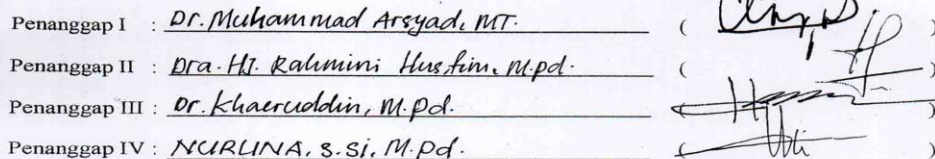 Penanggap I : Dr. Muhammad Arsyad, MT. ( )
Penanggap II : Dra. HJ. Rahmini Hustim, M.pd. ( )
Penanggap III : Dr. Khaeruddin, M.Pd. ( )
Penanggap IV : NURLINA, S.Si, M.Pd. ( )